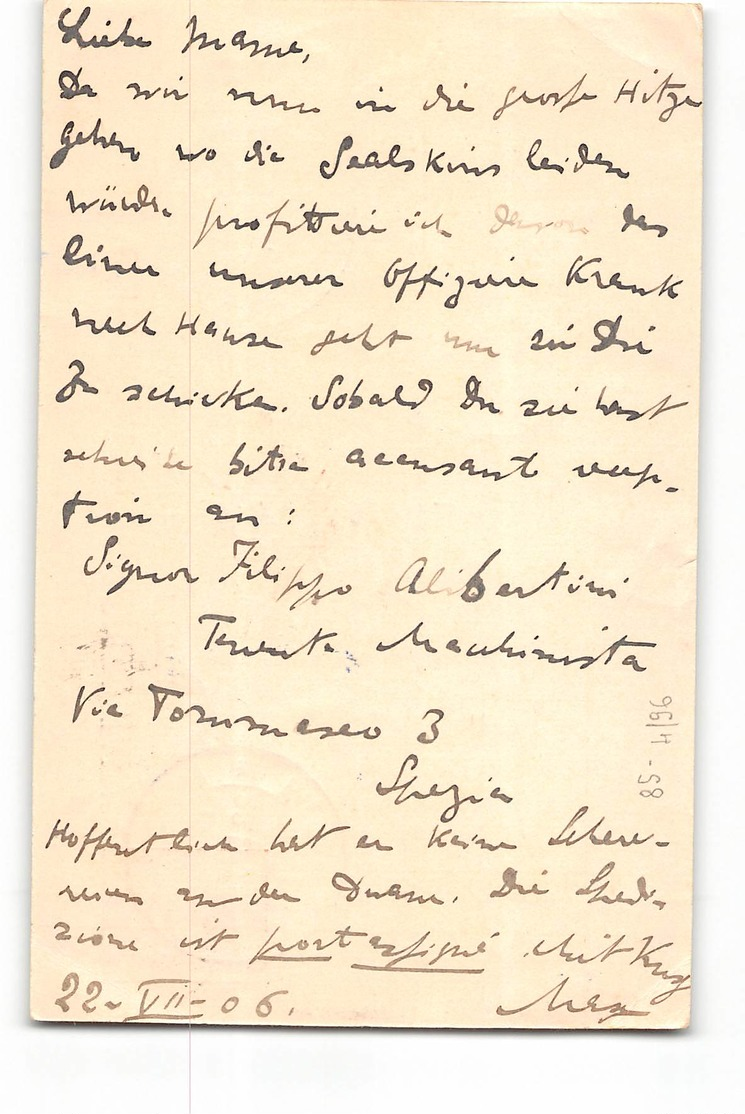 Liebe Mame,
Da wir nun in die grosse Hitze
gehen wo die Sealskins leiden
würden profittiere ich davon das
einer unserer Offiziere Krank
nach Hause geht um sie Dir
Zu schicken. Sobald Du sie hast
schreibe bitte accusant recep-
tion an:
Signor Filippo Alibertini
Tenente Macchinista
Via Tommaseo 3
Spezia
Hoffentlich hat er keine Schere-
reien an der Duane. Die Spedi-
zione ist port assigné Mit Kuss
22. VII - 06. Max
85-4/96